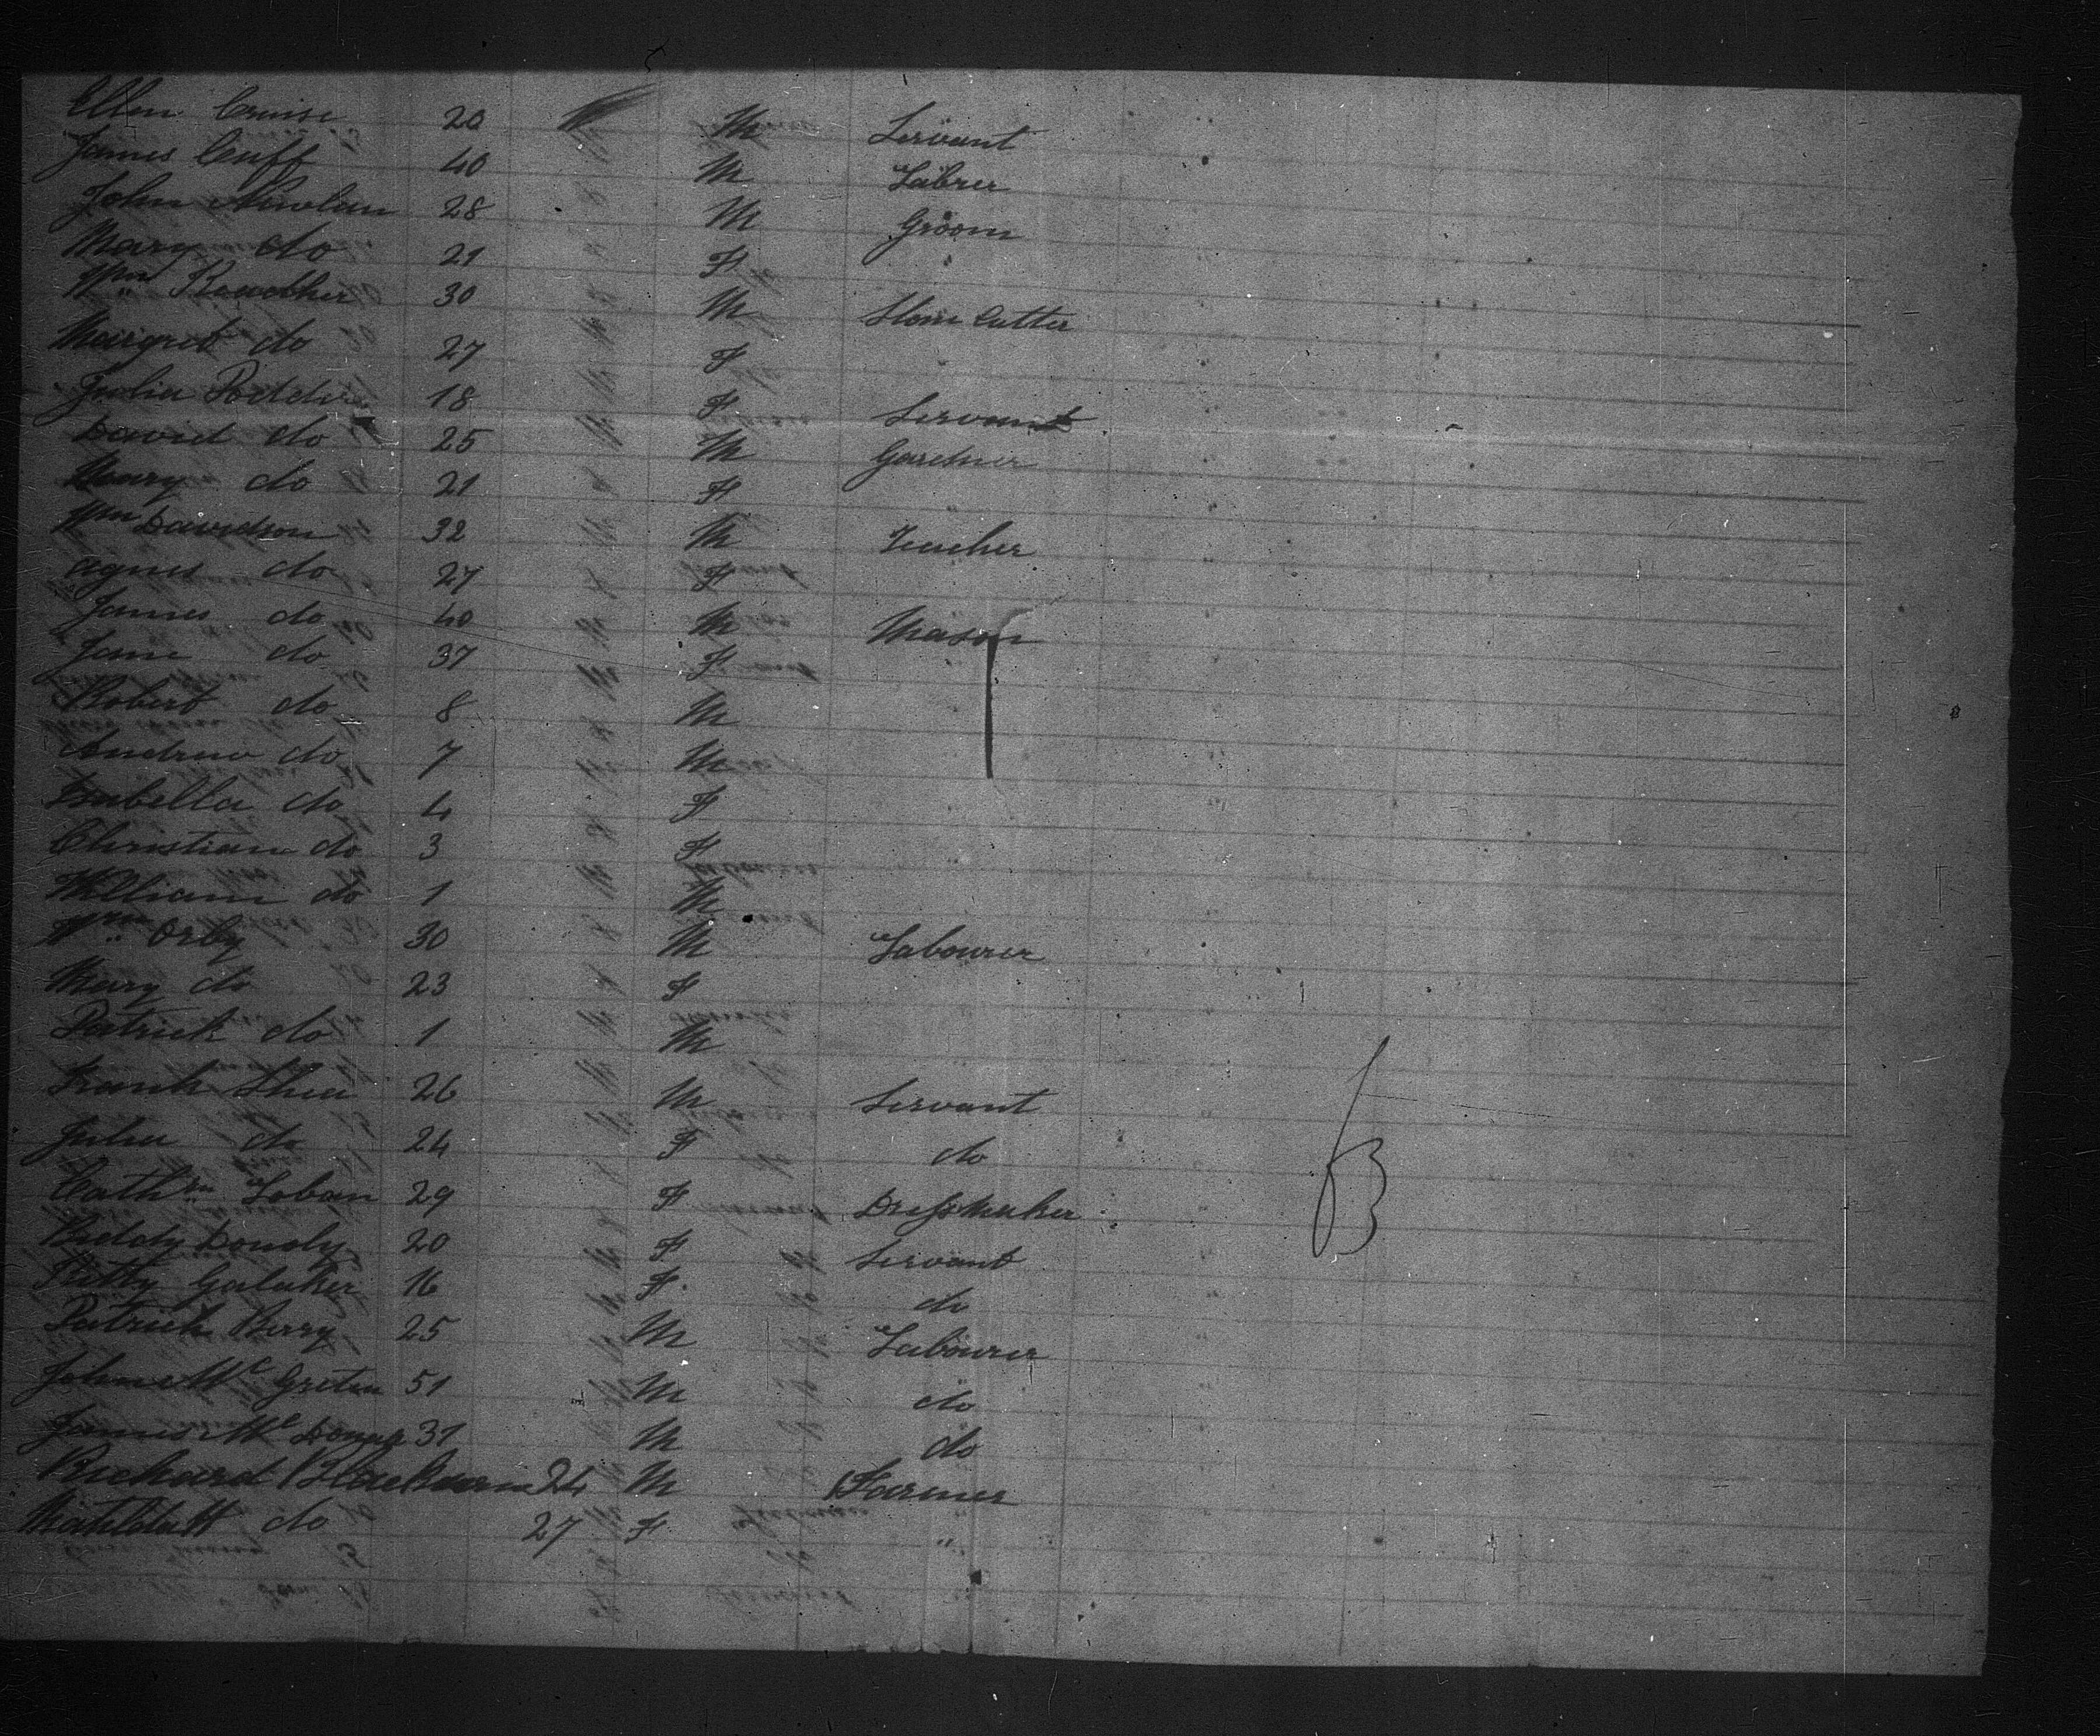 Ellen Cruise 20 M Servant
James Cuff 40 M Labrer
John Nowlan 28 M Groom
Mary do 21 F
Wm 30 M Stone Cutter
Margret do 27 F
Julia 18 F Servant
David do 25 M Gardner
Mary do 21 F
Wm Davidson 32 M Teacher
Agnes do 27 F
James do 40 M Mason
Jane do 37 F
Robert do 8 M
Andrew do 7 M
Isabella do 4 F
Christian do 3 F
William do 1 M
Wm Orby 30 M Labourer
Mary do 23 F
Patrick do 1 M
Frank Shea 26 M Servant
Julia do 24 F do
Cathrn Loban 29 F Dressmaker
Biddy Doudy 20 F Servant
Kitty Galaher 16 F. do
Patrick Berry 25 M Labourer
John Mc 51 M do
James Mc 31 M do
Richard Blackburn 24 M Farmer
do 27 F "